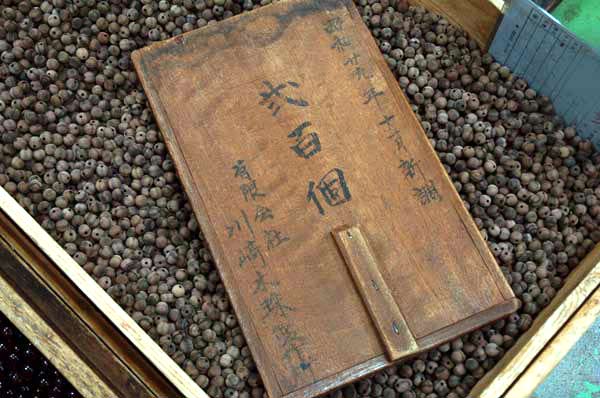 昭和廿九年十一月新調
弐百個
有限会社川崎木珠製作